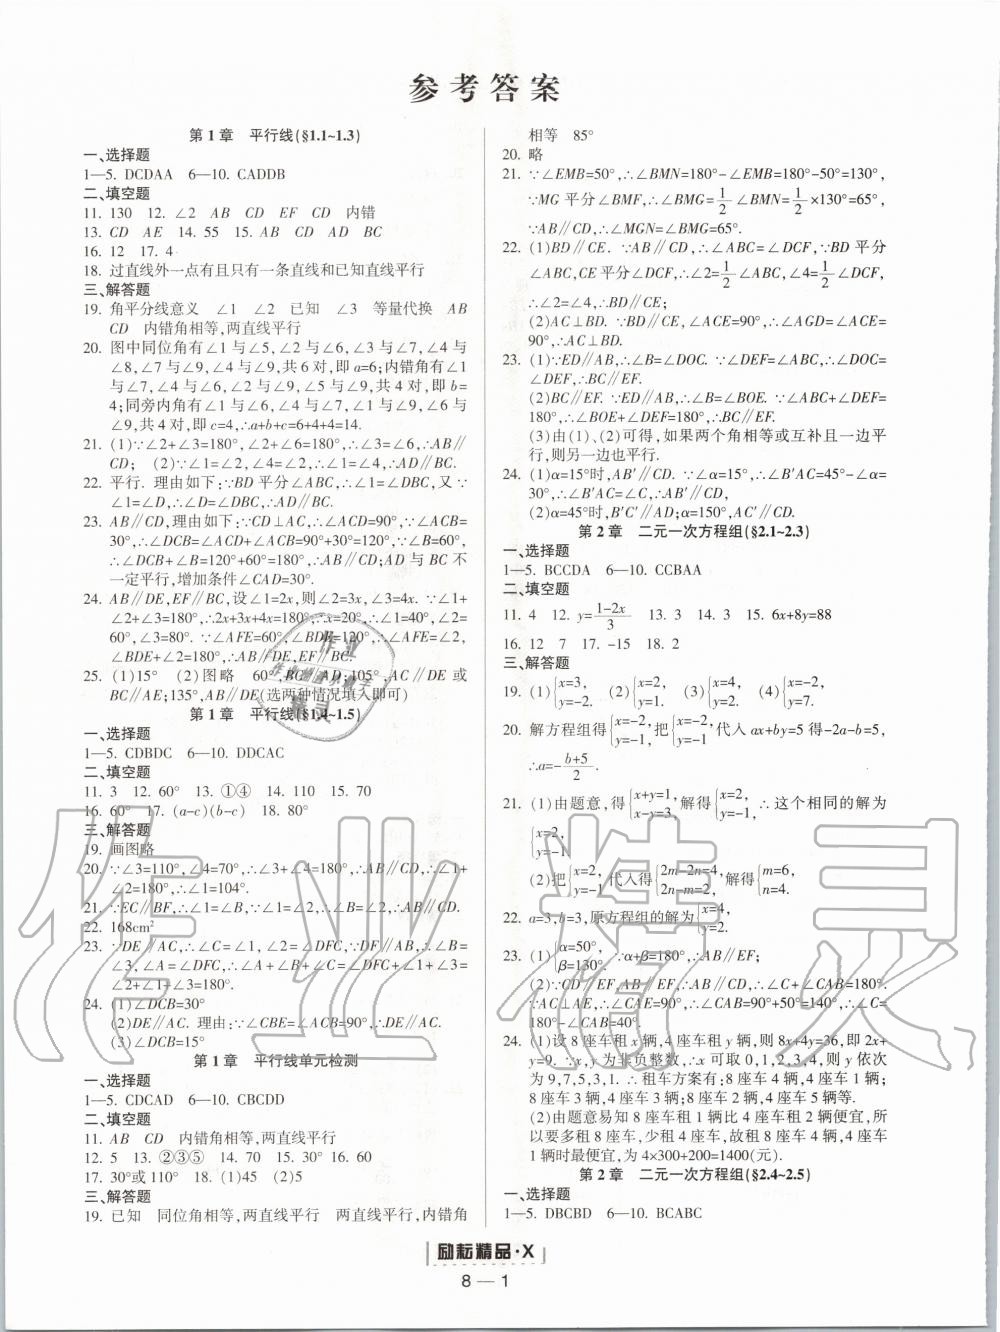 参考答案
第1章　平行线(§1.1~1.3)
一、选择题
1—5. DCDAA　6—10. CADDB
二、填空题
11. 130　12. ∠2　AB　CD　EF　CD　内错
13. CD　AE　14. 55　15. AB　CD　AD　BC
16. 12　17. 4
18. 过直线外一点有且只有一条直线和已知直线平行
三、解答题
19. 角平分线意义　∠1　∠2　已知　∠3　等量代换　AB
CD　内错角相等,两直线平行
20. 图中同位角有∠1与∠5,∠2与∠6,∠3与∠7,∠4与
∠8,∠7与∠9,∠4与∠9,共6对,即a=6;内错角有∠1
与∠7,∠4与∠6,∠2与∠9,∠5与∠9,共4对,即b=
4;同旁内角有∠1与∠6,∠4与∠7,∠1与∠9,∠6与
∠9,共4对,即c=4,∴a+b+c=6+4+4=14.
21. (1)∵∠2+∠3=180°,∠2+∠6=180°,∴∠3=∠6,∴AB∥
CD;　(2)∵∠1=∠2,∠4=∠2,∴∠1=∠4,∴AD∥BC.
22. 平行. 理由如下:∵BD平分∠ABC,∴∠2=∠DBC,又∵
∠1=∠D,∴∠D=∠DBC,∴AD∥BC.
23. AB∥CD,理由如下:∵CD⊥AC,∴∠ACD=90°,∵∠ACB=
30°,∴∠DCB=∠ACD+∠ACB=90°+30°=120°,∵∠B=60°,
∴∠DCB+∠B=120°+60°=180°,∴AB∥CD. AD与BC不
一定平行,增加条件∠CAD=30°.
24. AB∥DE,EF∥BC,设∠1=2x,则∠2=3x,∠3=4x. ∵∠1+
∠2+∠3=180°,∴2x+3x+4x=180°,∴x=20°,∴∠1=40°,∠2=
60°,∠3=80°. ∵∠AFE=60°,∠BDE=120°,∴∠AFE=∠2,
∠BDE+∠2=180°,∴AB∥DE,EF∥BC.
25. (1)15°　(2)图略　60°,BC∥AD;105°,AC∥DE或
BC∥AE;135°,AB∥DE(选两种情况填入即可)
第1章　平行线(§1.4~1.5)
一、选择题
1—5. CDBDC　6—10. DDCAC
二、填空题
11. 3　12. 60°　13. ①④　14. 110　15. 70
16. 60°　17. (a-c)(b-c)　18. 80°
三、解答题
19. 画图略
20. ∵∠3=110°,∠4=70°,∴∠3+∠4=180°,∴AB∥CD,∴∠1+
∠2=180°,∴∠1=104°.
21. ∵EC∥BF,∴∠1=∠B,∵∠1=∠2,∴∠2=∠B,∴AB∥CD.
22. 168cm²
23. ∵DE∥AC,∴∠C=∠1,∠A=∠DFC,∵DF∥AB,∴∠B=
∠3,∠A=∠DFC,∴∠2=∠DFC,∴∠A=∠2,∴∠A+∠B+∠C=
∠2+∠1+∠3=180°.
24. (1)∠DCB=30°
(2)DE∥AC. 理由:∵∠CBE=∠ACB=90°,∴DE∥AC.
(3)∠DCB=15°
第1章　平行线单元检测
一、选择题
1—5. CDCAD　6—10. CBCDD
二、填空题
11. AB　CD　内错角相等,两直线平行
12. 5　13. ②③⑤　14. 70　15. 30°　16. 60
17. 30°或110°　18. (1)45　(2)20
三、解答题
19. 已知　同位角相等,两直线平行　两直线平行,内错角
相等　85°
20. 略
21. ∵∠EMB=50°,∴∠BMN=180°-∠EMB=180°-50°=130°,
∵MG平分∠BMF,∴∠BMG=1/2∠BMN=1/2×130°=65°,
∵AB∥CD,∴∠MGN=∠BMG=65°.
22. (1)BD∥CE. ∵AB∥CD,∴∠ABC=∠DCF,∵BD平分
∠ABC,CE平分∠DCF,∴∠2=1/2∠ABC,∠4=1/2∠DCF,
∴∠2=∠4,∴BD∥CE;
(2)AC⊥BD. ∵BD∥CE,∠ACE=90°,∴∠DGC=∠ACE=
90°,∴AC⊥BD.
23. (1)∵ED∥AB,∴∠B=∠DOC. ∵∠DEF=∠ABC,∴∠DOC=
∠DEF,∴BC∥EF.
(2)BC∥EF. ∵ED∥AB,∴∠B=∠BOE. ∵∠ABC+∠DEF=
180°,∴∠BOE+∠DEF=180°,∴BC∥EF.
(3)由(1)、(2)可得,如果两个角相等或互补且一边平
行,则另一边也平行.
24. (1)α=15°时,AB′∥CD. ∵∠α=15°,∴∠B′AC=45°-∠α=
30°,∴∠B′AC=∠C,∴AB′∥CD.
(2)α=45°时,B′C′∥AD;α=150°,AC′∥CD.
第2章　二元一次方程组(§2.1~2.3)
一、选择题
1—5. BCCDA　6—10. CCBAA
二、填空题
11. 4　12. y=(1-2x)/3　13. 3　14. 3　15. 6x+8y=88
16. 12　7　17. -15　18. 2
三、解答题
19. (1){x=3, y=-2.　(2){x=2, y=1.　(3){x=4, y=2.　(4){x=-2, y=7.
20. 解方程组得{x=-2, y=-1,把{x=-2, y=-1,代入ax+by=5得-2a-b=5,
∴a=-(b+5)/2.
21. (1)由题意,得{x+y=1, x-y=3,解得{x=2, y=-1,∴这个相同的解为
{x=2, y=-1
(2)把{x=2, y=-1代入得{2m-2n=4, 2n-m=2,解得{m=6, n=4.
22. a=3,b=3,原方程组的解为{x=4, y=2.
23. (1){α=50°, β=130°.∵α+β=180°,∴AB∥EF;
(2)∵CD∥EF,AB∥EF,∴AB∥CD,∴∠C+∠CAB=180°.
∵AC⊥AE,∴∠CAE=90°,∴∠CAB=90°+50°=140°,∴∠C=
180°-∠CAB=40°.
24. (1)设8座车租x辆,4座车租y辆,则8x+4y=36,即2x+
y=9. ∵x,y为非负整数,∴x可取0,1,2,3,4,则y依次
为9,7,5,3,1. ∴租车方案有:8座车4辆,4座车1辆;
8座车3辆,4座车3辆;8座车2辆,4座车5辆等.
(2)由题意易知8座车租1辆比4座车租2辆便宜,所
以要多租8座车,少租4座车,故租8座车4辆,4座车
1辆时最便宜,为4×300+200=1400(元).
第2章　二元一次方程组(§2.4~2.5)
一、选择题
1—5. DBCBD　6—10. BCABC
励耘精品·X
8—1
作业精灵